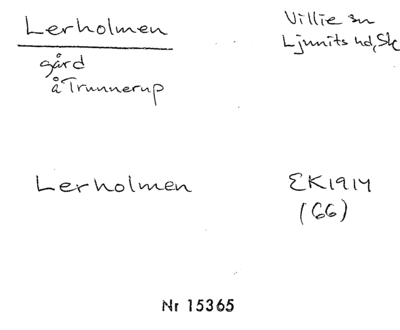 Lerholmen
gård
å Trunnerup
Villie sn
Ljunits hd, Sk
Lerholmen
EK1914
(66)
Nr 15365